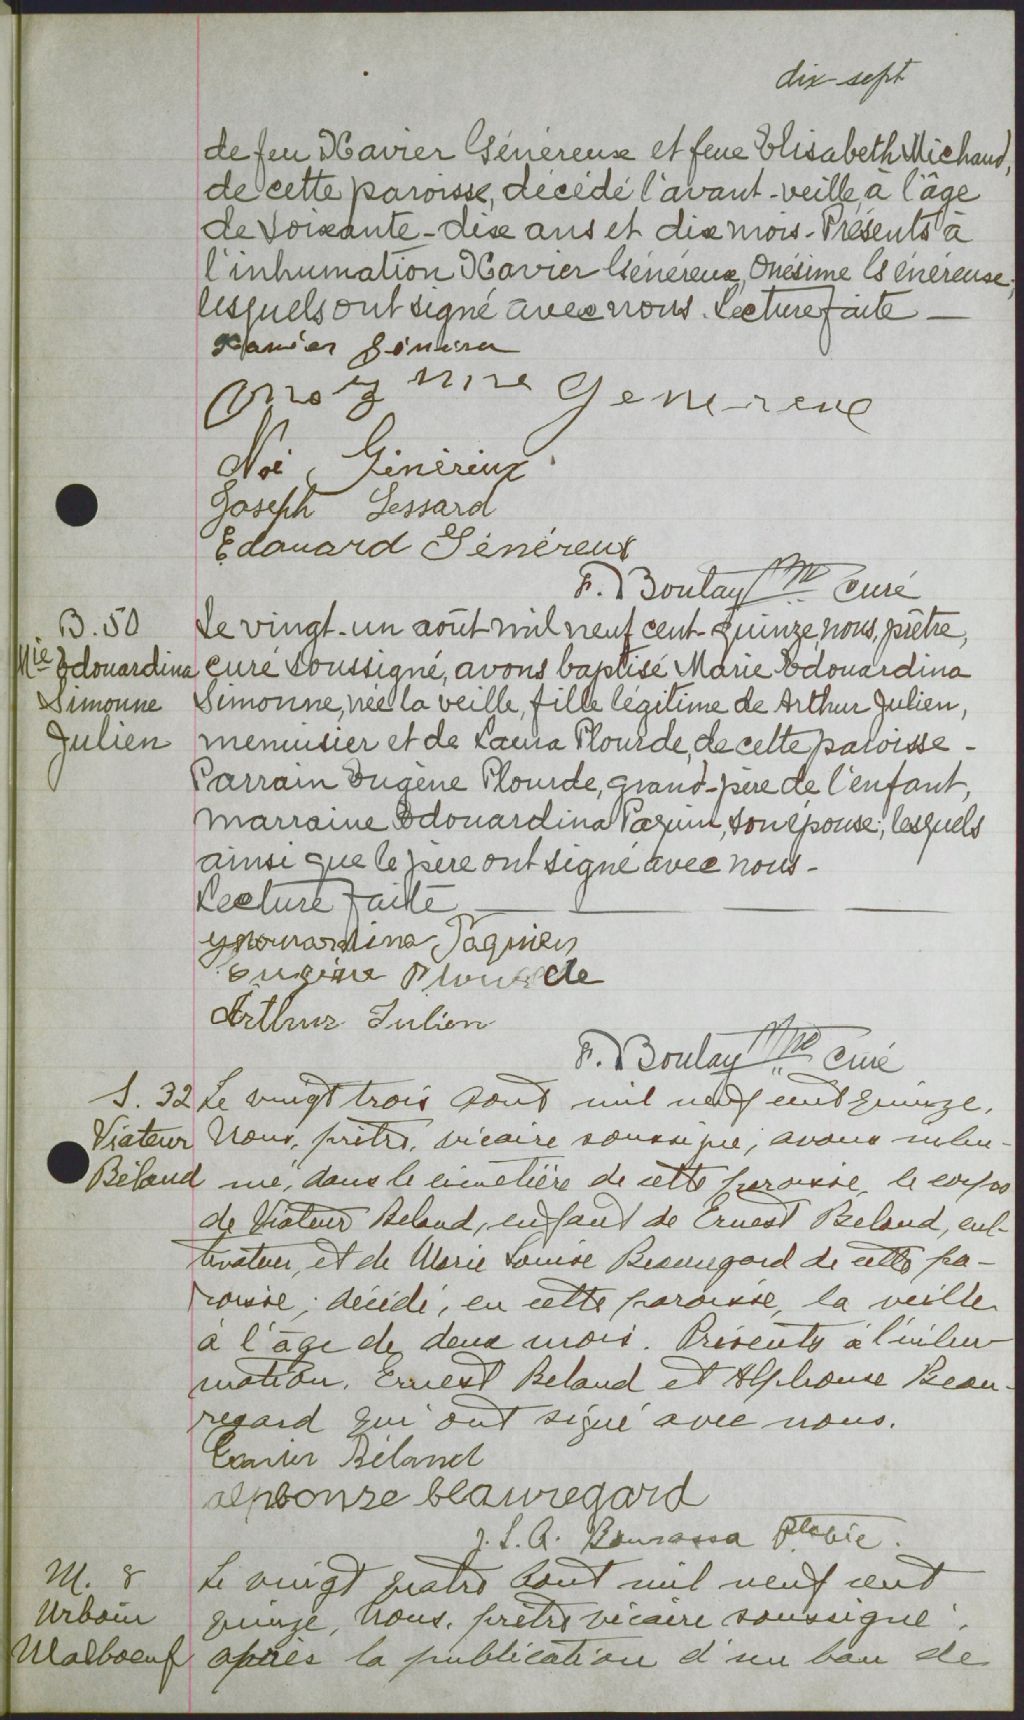 dix-sept
de feu Xavier Généreux et feue Elisabeth Michaud,
de cette paroisse, décédé l'avant-veille, à l'âge
de soixante-dix ans et dix mois. Présents à
l'inhumation Xavier Généreux, Onésime Généreux;
lesquels ont signé avec nous. Lecture faite —
Xavier
Généreux
Noé Généreux
Joseph Lessard
Edouard Généreux
F. Boulay Ptre Curé
B. 50
Mie Edouardina
Simonne
Julien
Le vingt-un août mil neuf cent-quinze, nous, prêtre,
curé soussigné, avons baptisé Marie Edouardina
Simonne, née la veille, fille légitime de Arthur Julien,
menuisier et de Laura Plourde, de cette paroisse -
Parrain Eugène Plourde, grand-père de l'enfant,
marraine Edouardina Paquin, son épouse; lesquels
ainsi que le père ont signé avec nous -
Lecture faite
Paquien
Eugène Plourde
Arthur Julien
F. Boulay Ptre Curé
S. 32
Viateur
Béland
Le vingt trois Aout mil neuf cent quinze,
Nous, prêtre, vicaire soussigné, avons inhu-
mé, dans le cimetière de cette paroisse, le corps
de Viateur Beland, enfant de Ernest Beland, cul-
tivateur, et de Marie Louise Beauregard de cette pa-
roisse; décédé, en cette paroisse, la veille
à l'âge de deux mois. Présents à l'inhu-
mation, Ernest Beland et Alphonse Beau-
regard qui ont signé avec nous.
Béland
alphonse beauregard
J. L. A. Bourassa Ptre Vic.
M. 8
Urbain
Malboeuf
Le vingt quatre Aout mil neuf cent
quinze, Nous, prêtre vicaire soussigné,
après la publication d'un ban de